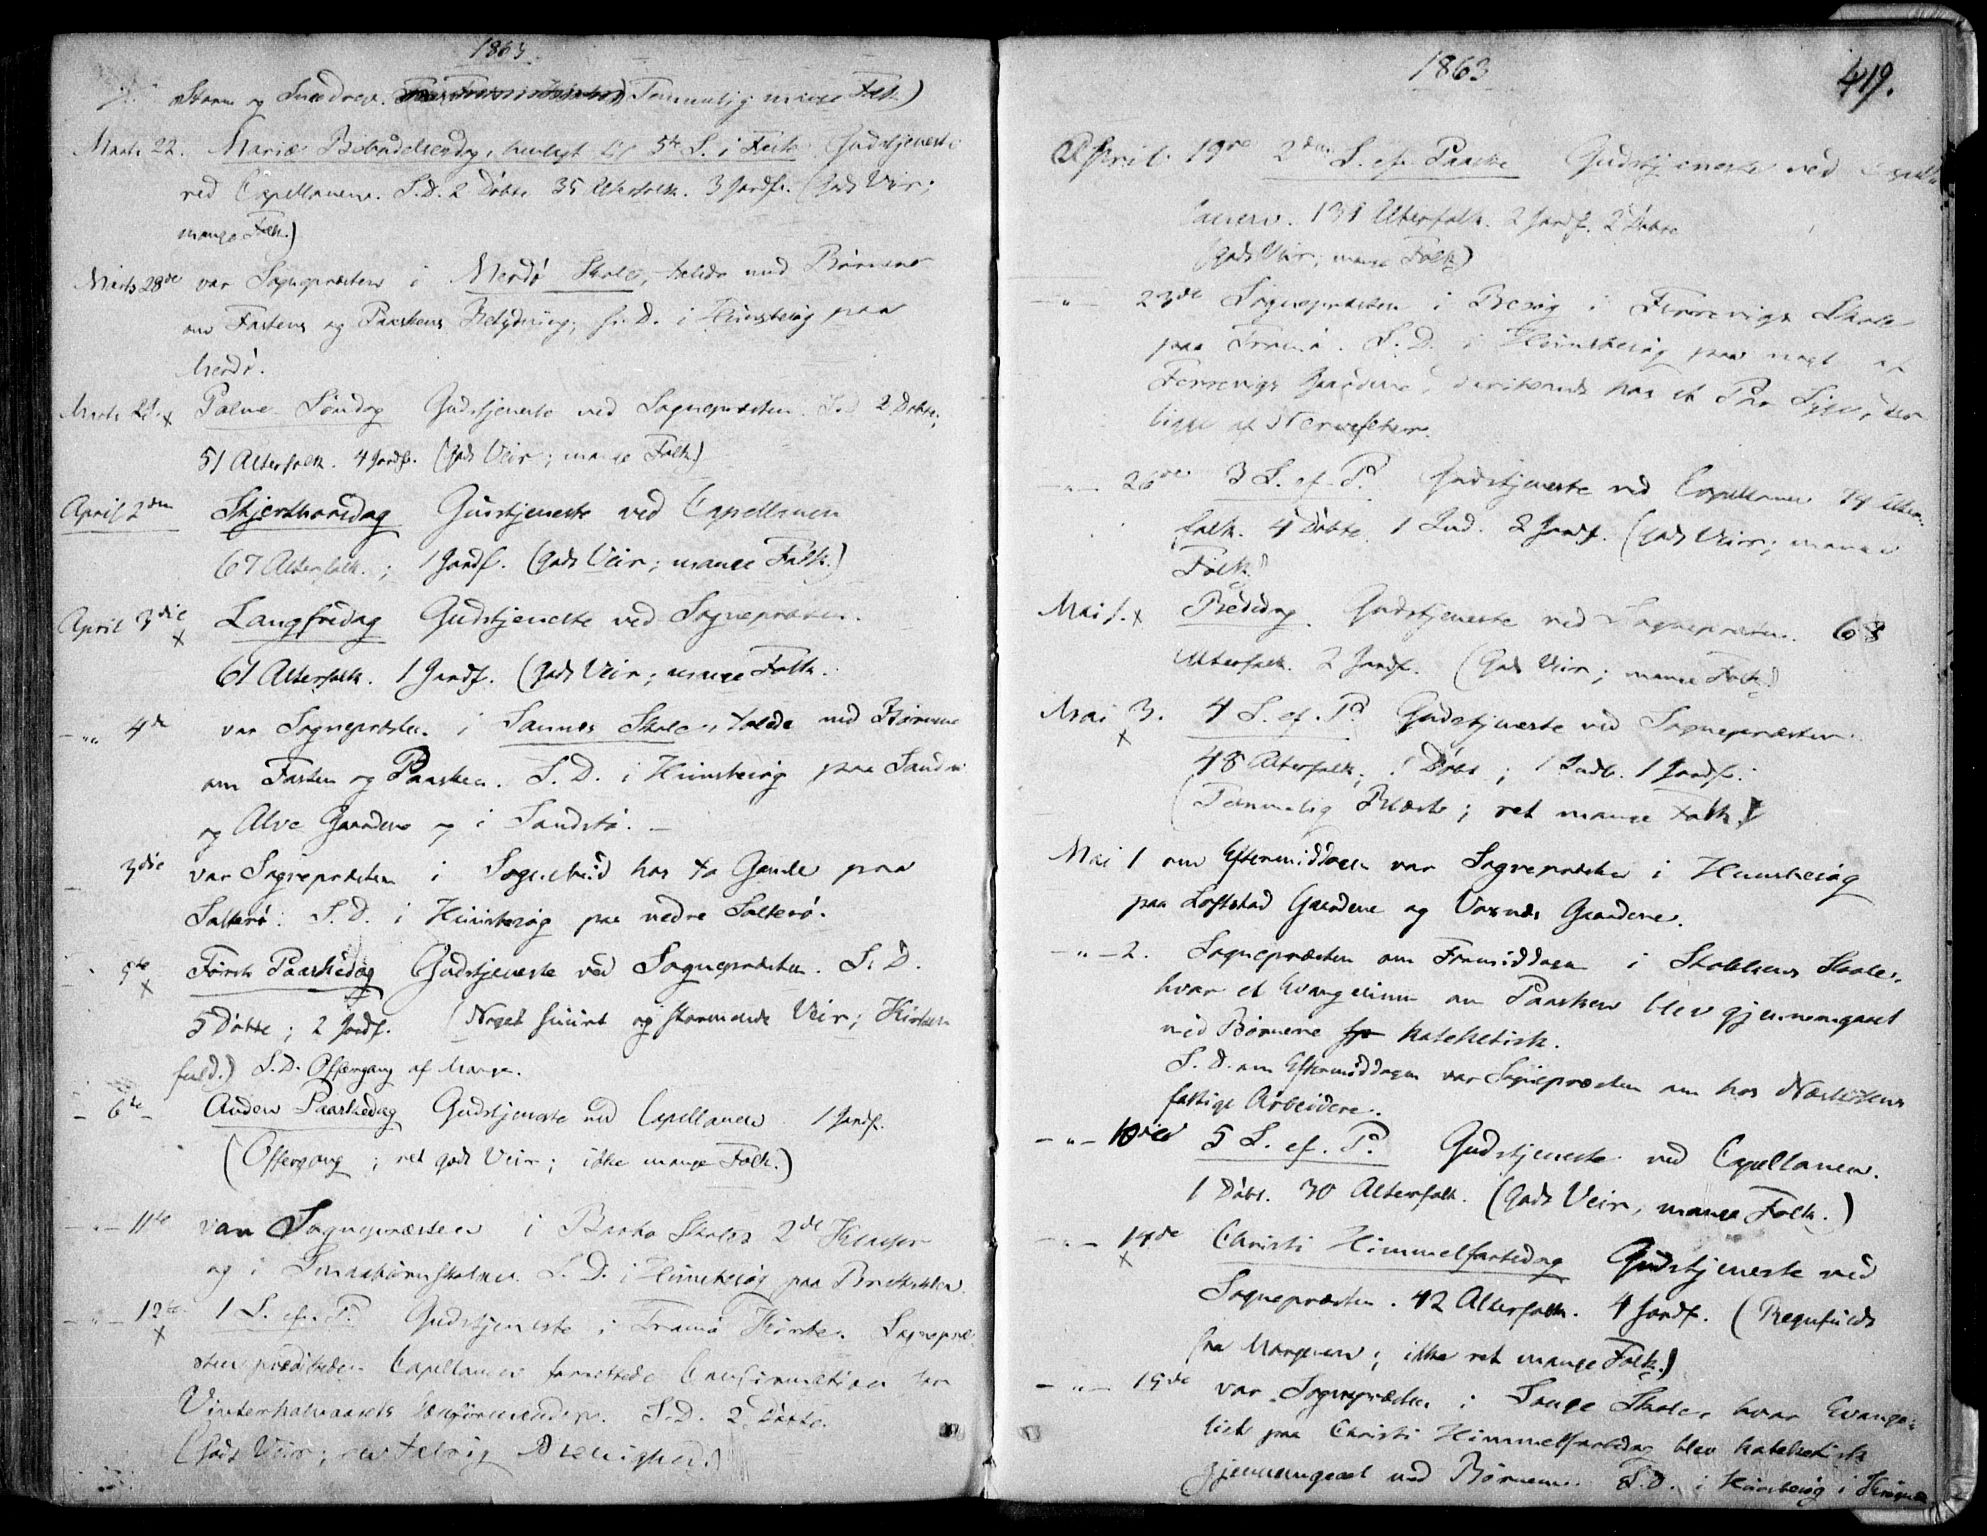 1863.
Storm og Snedrev. Temmelig mange Folk.)
Marts 22. Mariæ Bebudelsesdag, henlagt til 5te S. i Faste Gudstjeneste
ved Capellanen. S.D. 2 Døbte 35 Alterfolk. 3 Jordf. (Godt Veir;
mange Folk.)
Marts 28de var Sognepræsten i Merdø Skole, talede med Børnene
om Fastens og Paaskens Betydning; S.D. i Huusbesøg paa
Merdø.
Marts 29. x Palme Søndag Gudstjeneste ved Sognepræsten. S.D. 2 Døbte,
51 Alterfolk. 4 Jordf. (Godt Veir; mange Folk.)
April 2den Skjerthorsdag Gudstjeneste ved Capellanen
67 Alterfolk. ; 1 Jordf. (Godt Veir; mange Folk.)
April 3die x Langfredag Gudstjeneste ved Sognepræsten.
61 Alterfolk. 1 Jordf. (Godt Veir; mange Folk.
- „ 4de var Sognepræsten i Sannes Skole, talede med Børnene
om Fasten og Paasken. S.D. i Huusbesøg paa Sandn
og Alve Gaardene og i Sandstø. -
- 3die var Sognepræsten i Sognebud hos to Gamle paa
Salterø. S.D. i Huusbesøg paa nedre Salterø.
5te x Første Paaskedag Gudstjeneste ved Sognepræsten. S.D.
5 Døbte; 2 Jordf. (Noget suurt og stormende Veir; Kirken
fuld.) S.D. Offergang af Mange.
- 6te - Anden Paaskedag Gudstjeneste ved Capellanen. 1 Jordf.
(Offergang ; ret godt Veir; ikke mange Folk.)
- „ - 11te var Sognepræsten i Barbo Skoles 2de Klasser
og i Smaabørnskolen. S.D. i Huusbesøg paa
- „ - 12te x 1 S. ef. P. Gudstjeneste i Tromø Kirke. Sognepræ-
sten prædikede. Capellanen forrettede Confirmation for
Vinterhalvaarets Confirmander. S.D. 2 Døbte.
(Godt Veir; en talrig Menighed.)
1863
419.
April. 19de 2den S. ef. Paaske Gudstjeneste ved Capel-
lanen. 131 Alterfolk. 2 Jordf. 2 Døbte
(Godt Veir; mange Folk)
- „ - 23de Sognepræsten i Besøg i Færvigs Skole
paa Tromø. S.D. i Huusbesøg paa nogle af
Færvigs Gaardene, deriblandt hos et Par Syge, der
ligge af Nervefeber.
- „ - 26de 3 S. ef. P. Gudstjeneste ved Capellanen 74 Alter-
folk. 4 Døbte. 1 Ind. 2 Jordf. (Godt Veir; mange
Folk.)
Mai 1. x Bededag. Gudstjeneste ved Sognepræsten. 68
Alterfolk. 2 Jordf. (Godt Veir; mange Folk.)
Mai 3. x 4 S. ef. P. Gudstjeneste ved Sognepræsten.
48 Alterfolk; 1 Døbt ; 1 Indl. 1 Jordf.
(Temmelig Blæst; ret mange Folk.)
Mai 1 om Eftermiddagen var Sognepræsten i Huusbesøg
paa Loftstad Gaardene og Vaxnæs Gaardene.
- „ - 2. Sognepræsten om Formiddagen i Stokkens Skole,
hvor et Evangelium om Paasken blev gjennemgaaet
med Børnene katekhetisk.
S.D. om Eftermiddagen var Sognepræsten om hos
fattige Arbeidere.
- „ - 10de 5 S. ef. P. Gudstjeneste ved Capellanen.
1 Døbt. 30 Alterfolk. (Godt Veir, mange Folk.)
- „ - 14de x Christi Himmelfartsdag Gudstjeneste ved
Sognepræsten. 42 Alterfolk. 4 Jordf. (Regnfuldt
fra Morgenen; ikke ret mange Folk.)
- „ - 15de var Sognepræsten i Songe Skole, hvor Evange-
liet paa Christi Himmelfartsdag blev katekhetisk
gjennemgaaet med Børnene. S.D. i Huusbesøg i